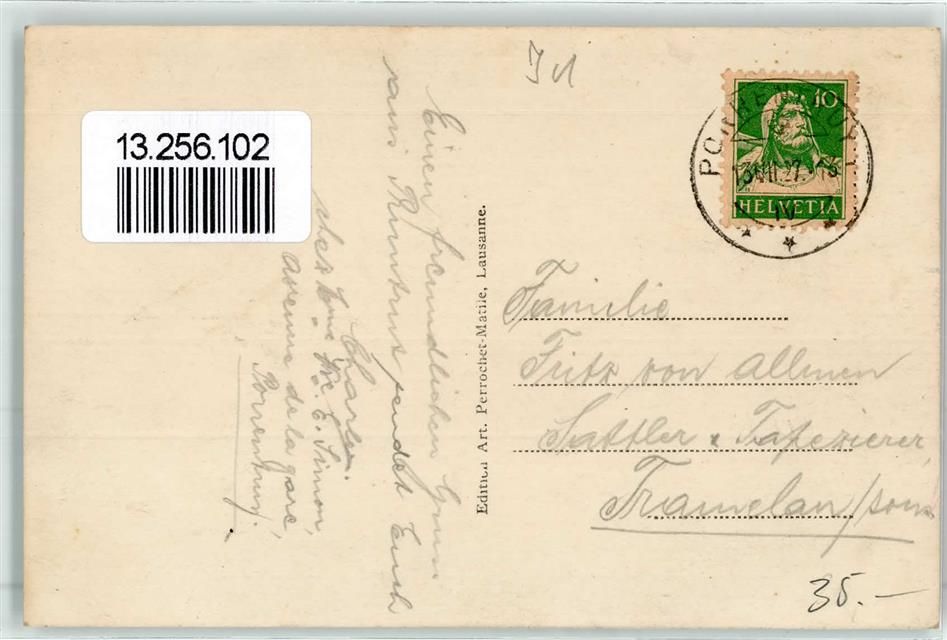 13.256.102
J U
10
HELVETIA
PORRENTRUY 1
31.VII.27.-18
IV
Einen freundlichen Gruss
aus Pruntrut sendet Euch
Charles
chez E. Simon,
avenue de la gare,
Porrentruy.
Edition Art. Perrochet-Matile, Lausanne.
Familie
Fritz von Allmen
Sattler & Tapezierer,
Tramelan/
35.—